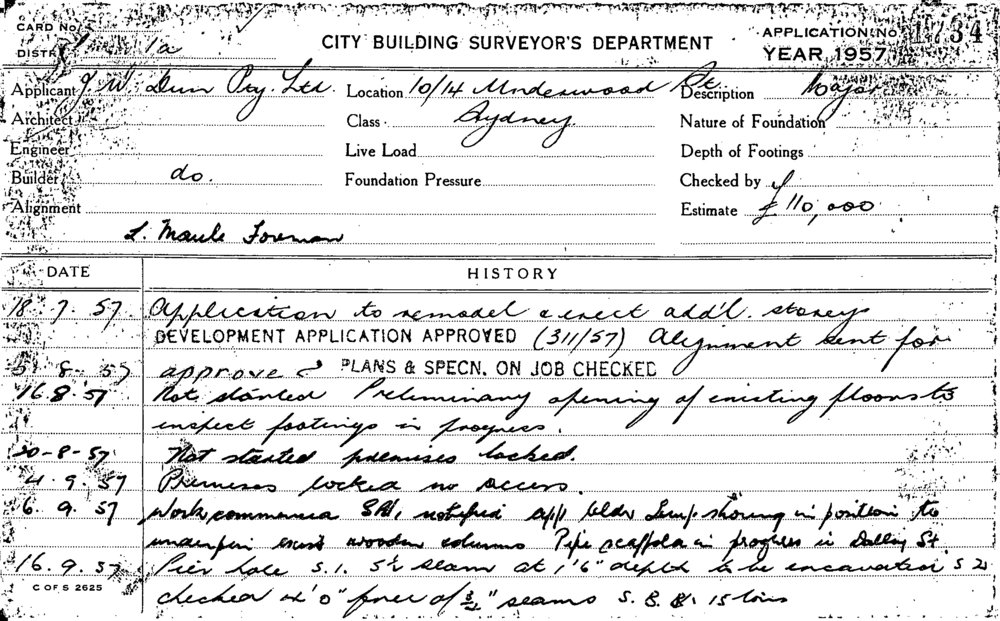 CARD No
DISTR 1a
CITY BUILDING SURVEYOR'S DEPARTMENT
APPLICATION No 734
YEAR 1957
Applicant J. W. Dunn Pty. Ltd. Location 10/14 Underwood St. Description Major
Architect Class Sydney Nature of Foundation
Engineer Live Load Depth of Footings
Builder do. Foundation Pressure Checked by
Alignment Estimate £110,000
L. Maule Foreman
DATE HISTORY
18. 7. 57 Application to remodel & erect add'l. storeys
DEVELOPMENT APPLICATION APPROVED (311/57) Alignment sent for
5. 8. 57 approve PLANS & SPECN. ON JOB CHECKED
16.8.57 Not started Preliminary opening of existing floors to
inspect footings in progress.
20-8-57 Not started premises locked.
4. 9. 57 Premises locked no access.
6. 9. 57 Work commenced notified bldr Temp shoring in position to
underpin wooden columns Pipe scaffold in progress in Dalley St.
16. 9. 57 Pier hole S.1. seam at 1'6" depth to be excavated
C OF S 2625
checked 4'0" free of seams 15 tons